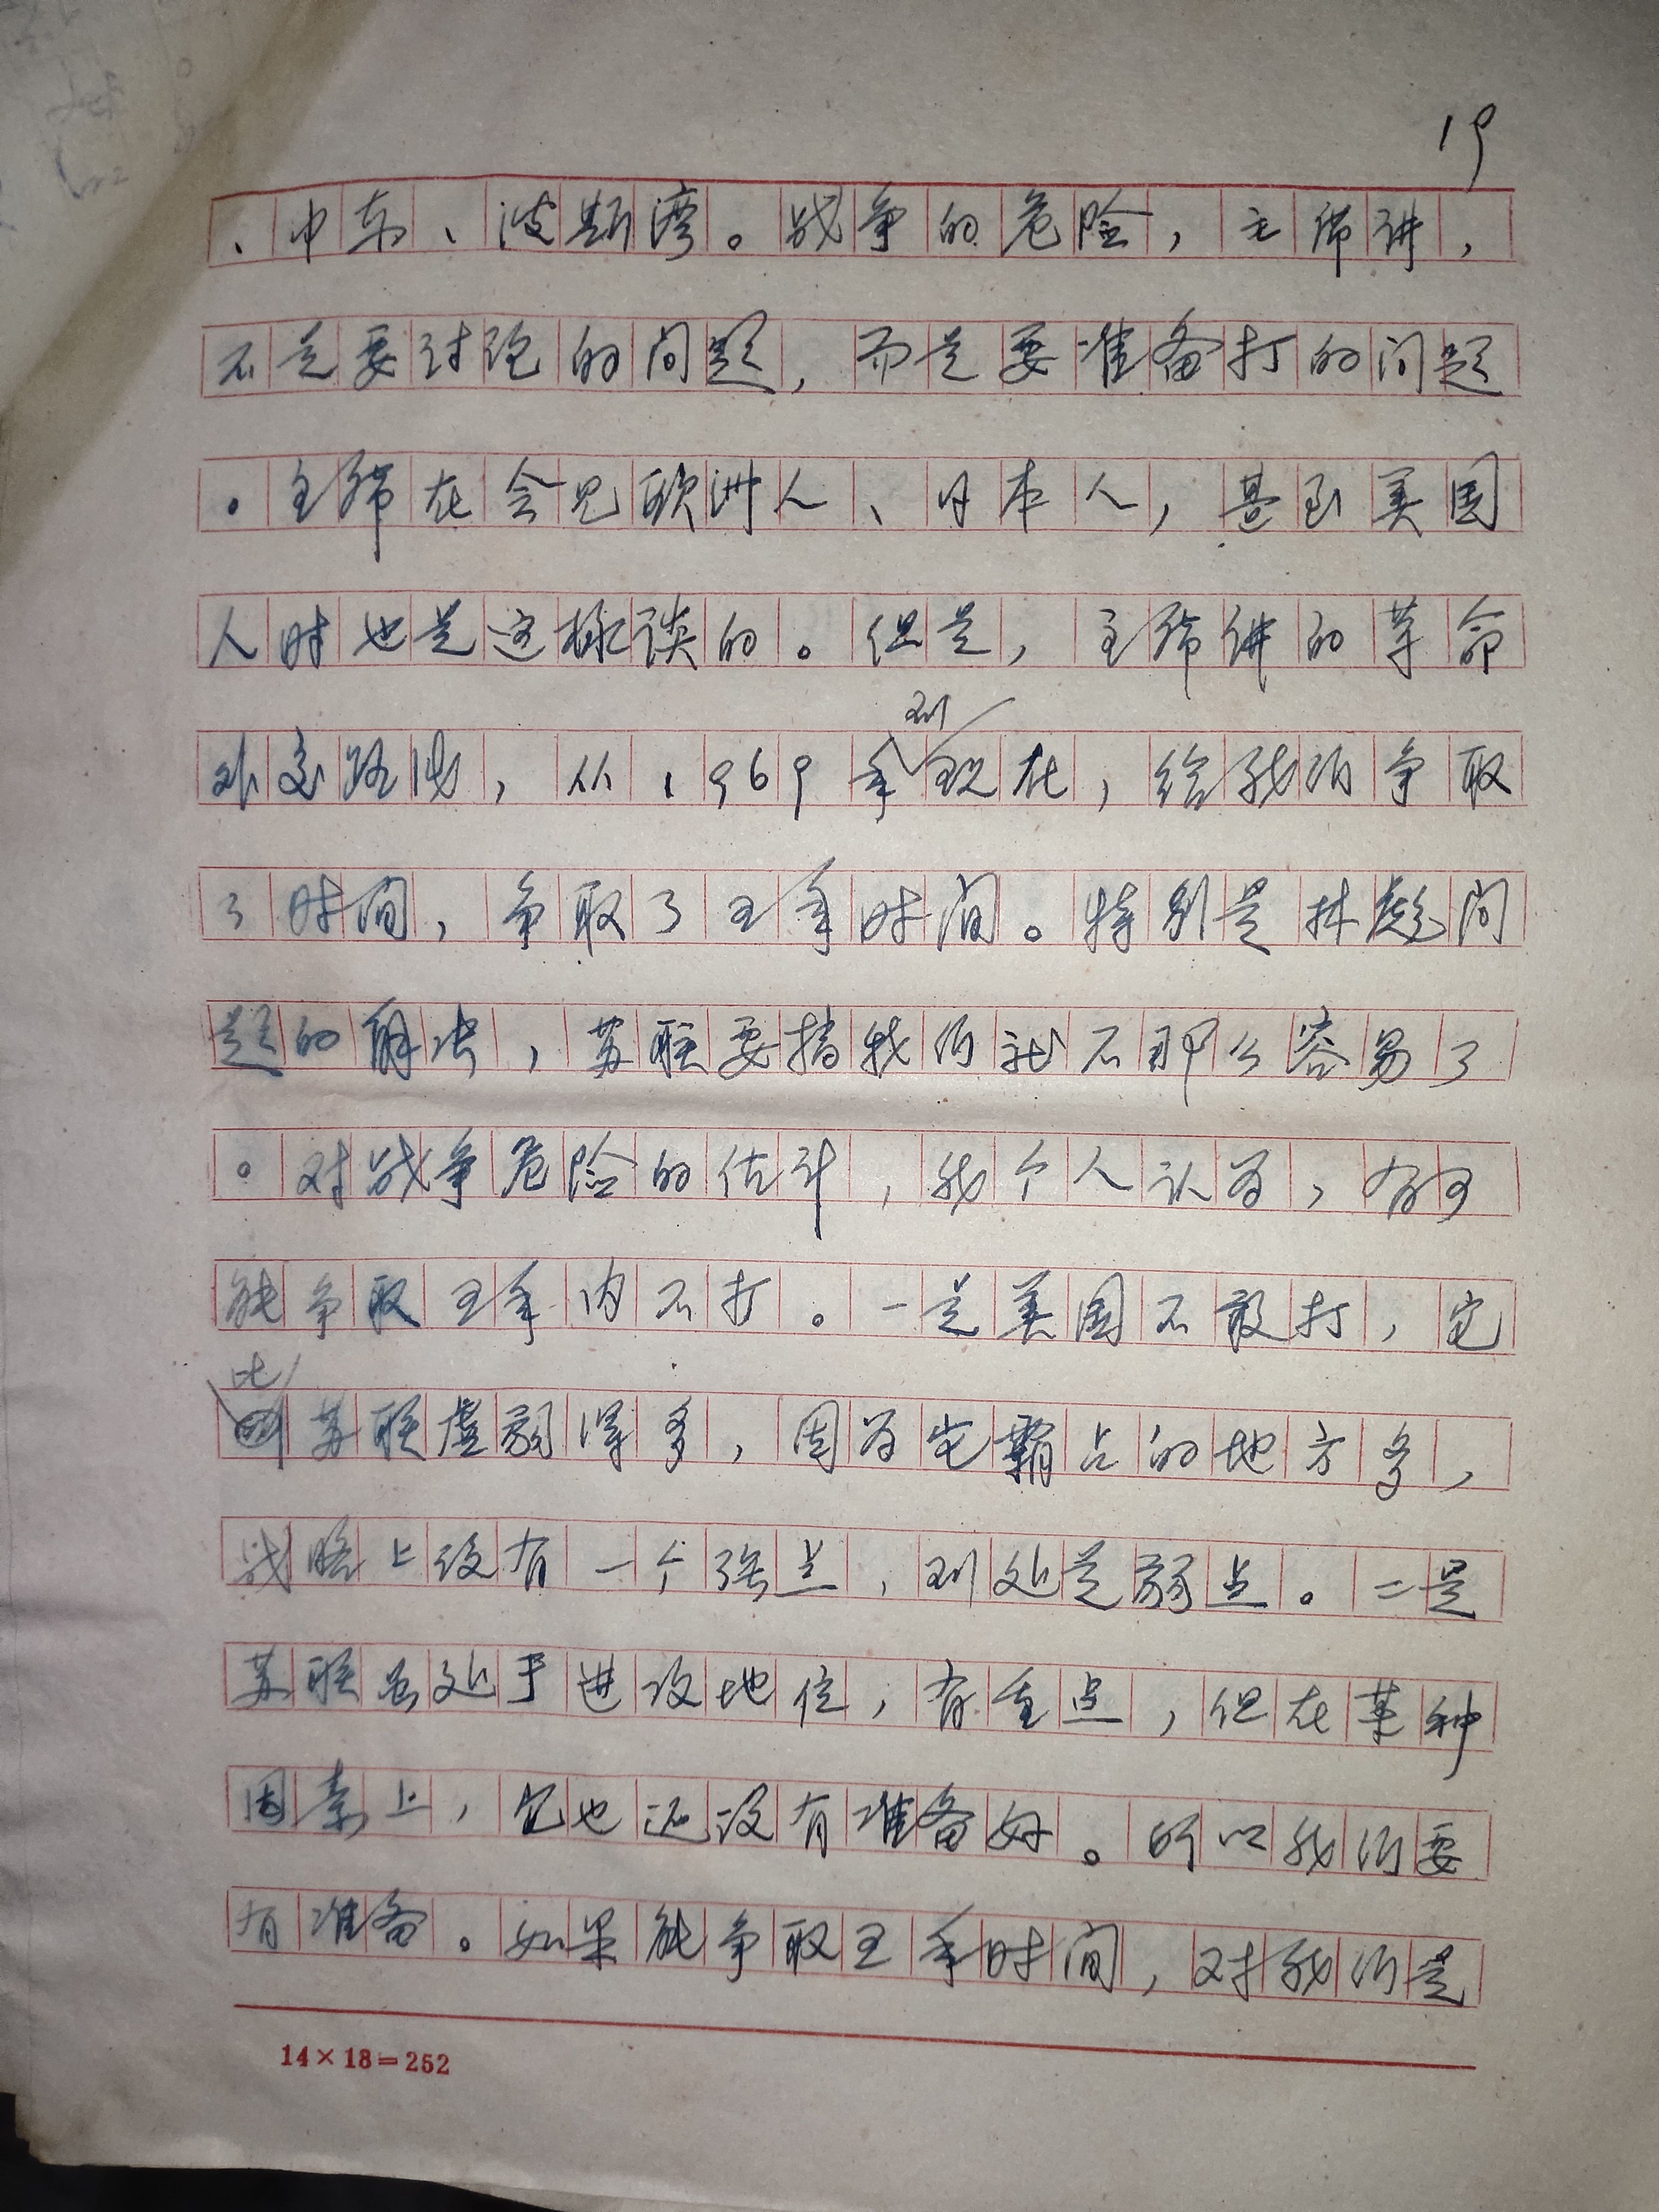 19
、中东、波斯湾。战争的危险，主席讲，
不是要讨论的问题，而是要准备打的问题
。主席在会见欧洲人、日本人，甚至美国
人时也是这样谈的。但是，主席讲的革命
外交路线，从1969年到现在，给我们争取
了时间，争取了五年时间。特别是林彪问
题的解决，苏联要搞我们就不那么容易了
。对战争危险的估计，我个人认为，有可
能争取五年内不打。一是美国不敢打，它
比苏联虚弱得多，因为它霸占的地方多，
战略上没有一个强点，到处是弱点。二是
苏联虽处于进攻地位，有重点，但在某种
因素上，它也还没有准备好。所以我们要
有准备。如果能争取五年时间，对我们是
14×18=252